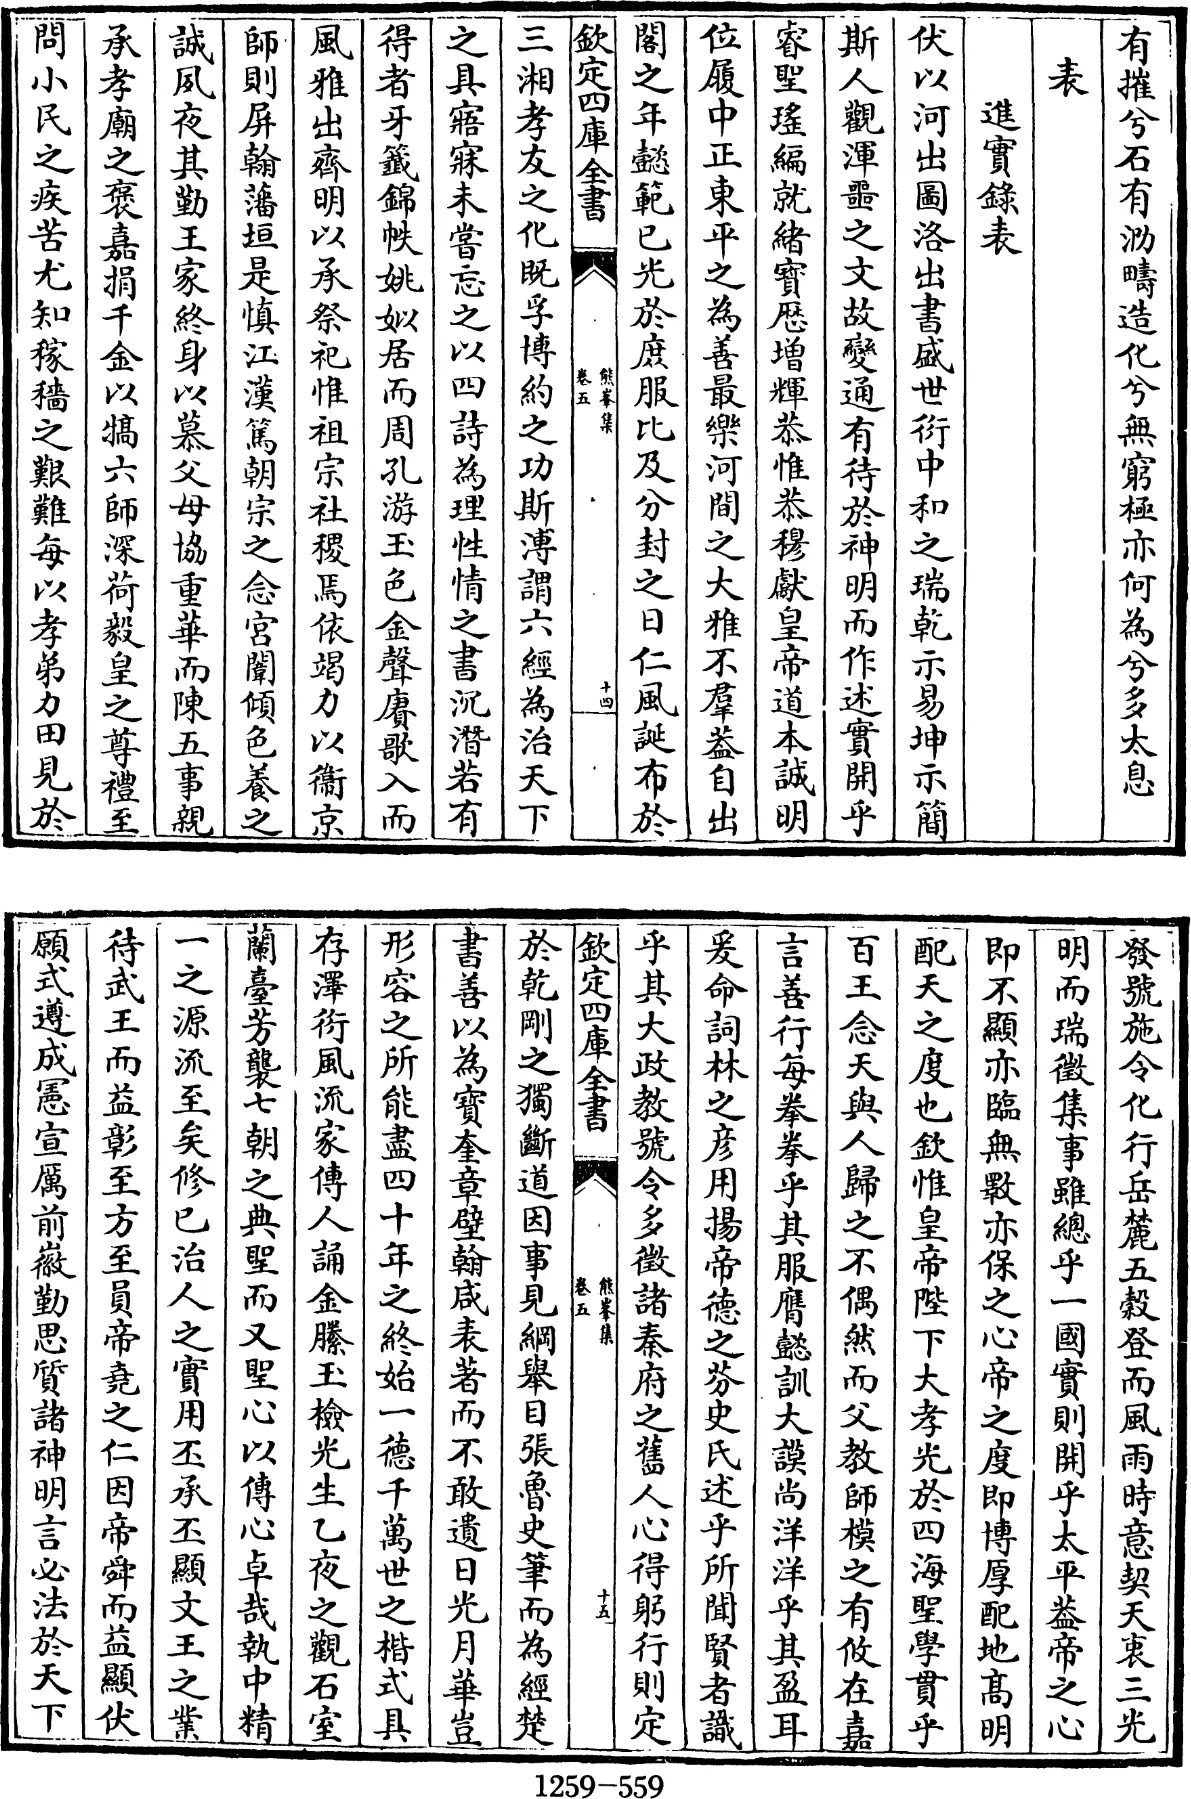 有摧兮石有泐疇造化兮無窮極亦何為兮多太息
表
進實錄表
伏以河出圖洛出書盛世衍中和之瑞乾示易坤示簡
斯人觀渾噩之文故變通有待於神明而作述實開乎
睿聖瑤編就緒寶厯增輝恭惟恭穆獻皇帝道本誠明
位履中正東平之為善最樂河間之大雅不羣葢自出
閣之年懿範已光於庶服比及分封之日仁風誕布於
欽定四庫全書
熊峯集
卷五
十四
三湘孝友之化既孚博約之功斯溥謂六經為治天下
之具寤寐未嘗忘之以四詩為理性情之書沉潛若有
得者牙籤錦帙姚姒居而周孔游玉色金聲賡歌入而
風雅出齊明以承祭祀惟祖宗社稷焉依竭力以衞京
師則屏翰藩垣是慎江漢篤朝宗之念宮闈傾色養之
誠夙夜其勤王家終身以慕父母協重華而陳五事親
承孝廟之褒嘉捐千金以犒六師深荷毅皇之尊禮至
問小民之疾苦尤知稼穡之艱難每以孝弟力田見於
發號施令化行岳麓五穀登而風雨時意契天衷三光
明而瑞徵集事雖總乎一國實則開乎太平葢帝之心
即不顯亦臨無斁亦保之心帝之度即博厚配地高明
配天之度也欽惟皇帝陛下大孝光於四海聖學貫乎
百王念天與人歸之不偶然而父教師模之有攸在嘉
言善行每拳拳乎其服膺懿訓大謨尚洋洋乎其盈耳
爰命詞林之彥用揚帝德之芬史氏述乎所聞賢者識
乎其大政教號令多徵諸秦府之舊人心得躬行則定
欽定四庫全書
熊峯集
卷五
十五
於乾剛之獨斷道因事見綱舉目張魯史筆而為經楚
書善以為寶奎章壁翰咸表著而不敢遺日光月華豈
形容之所能盡四十年之終始一德千萬世之楷式具
存澤衍風流家傳人誦金縢玉檢光生乙夜之觀石室
蘭臺芳襲七朝之典聖而又聖心以傳心卓哉執中精
一之源流至矣修已治人之實用丕承丕顯文王之業
待武王而益彰至方至員帝堯之仁因帝舜而益顯伏
願式遵成憲宣厲前徽勤思質諸神明言必法於天下
1259-559